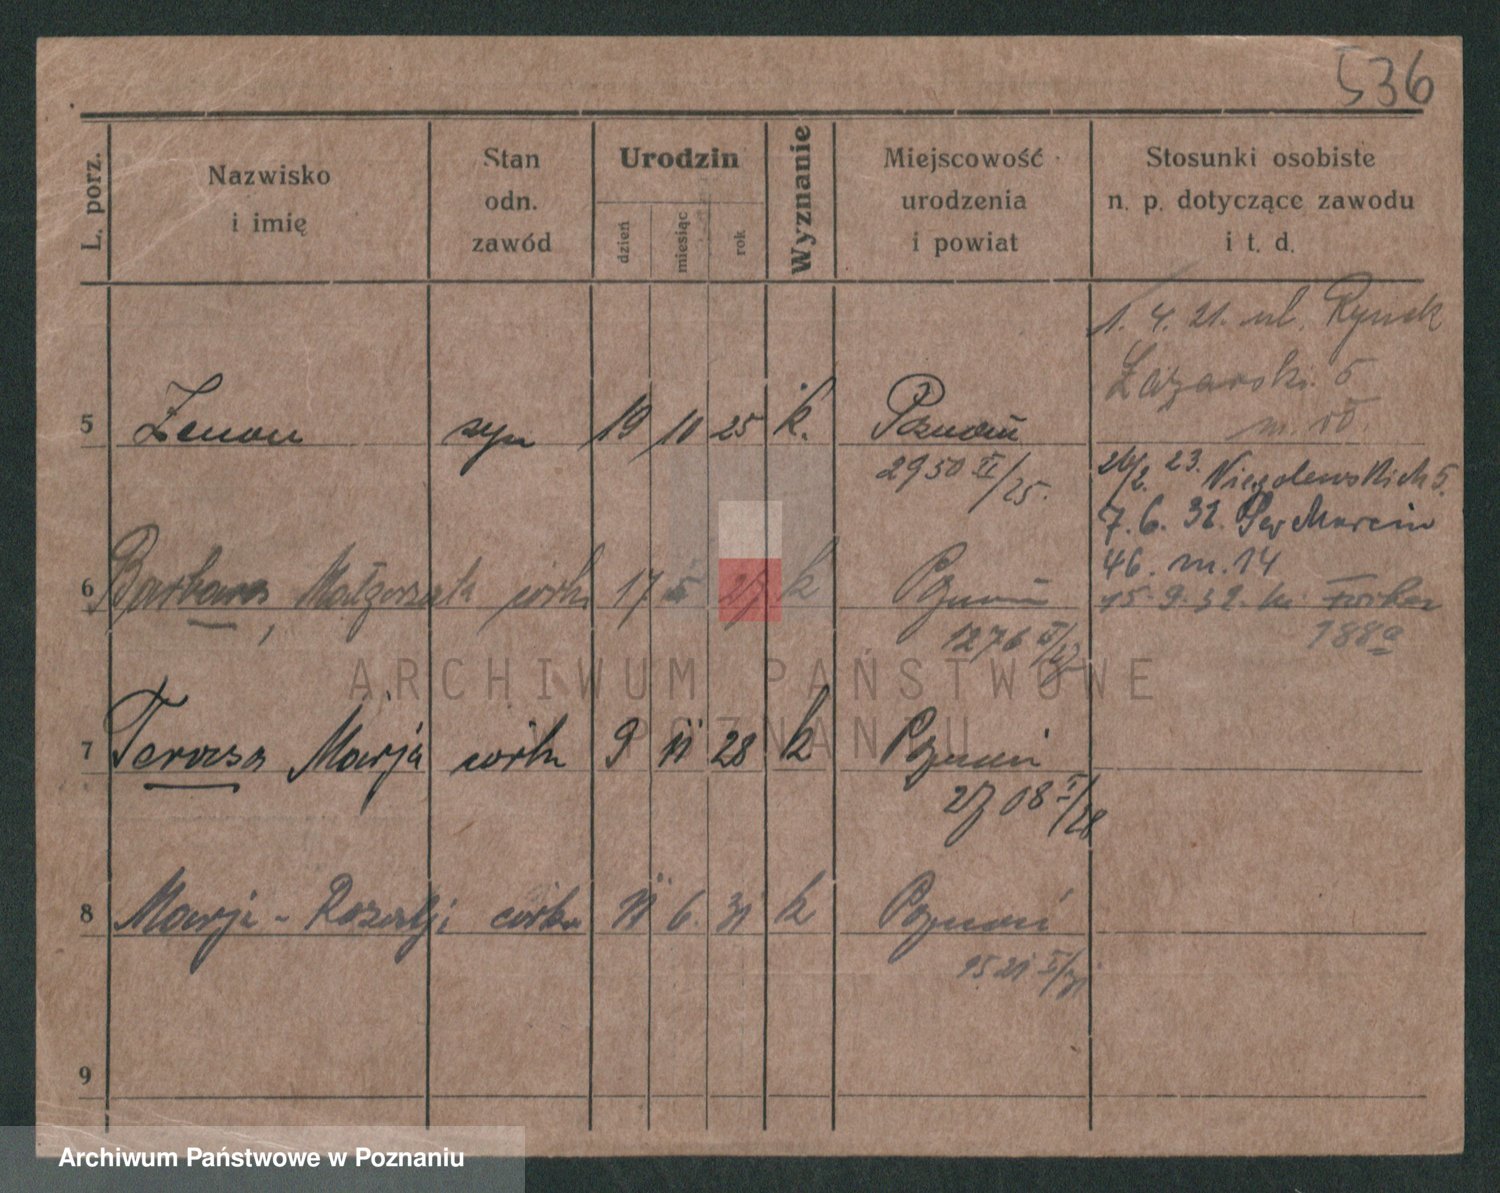 536
L. porz.
Nazwisko
i imię
Stan
odn.
zawód
Urodzin
dzień
miesiąc
rok
Wyznanie
Miejscowość
urodzenia
i powiat
Stosunki osobiste
n. p. dotyczące zawodu
i t. d.
1. 4. 21. ul. Rynek
Łazarski. 5
m.
5 Zenon syn 19 10 25 k. Poznań
2950 II/25.
24/2. 23. Niegolewskich 5.
7. 6. 32. Św Marcin
46. m. 14
6 Barbara, Małgorzata córka 17 5 27 k Poznań
1276 II/27
15. 9. 32. 
188a
7 Teresa Marja córka 9 11 28 k Poznań
2708 I/28
8 Marja - Rozalja córka 11 6. 31 k Poznań
1521 I/31
9
ARCHIWUM PAŃSTWOWE
W POZNANIU
Archiwum Państwowe w Poznaniu